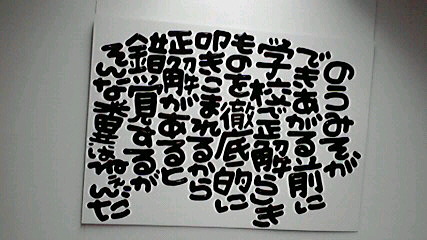 のうみそが
できあがる前に
学校で正解らしき
ものを徹底的に
叩きこまれるから
正解があると
錯覚するが
そんな糞はねぇんだ